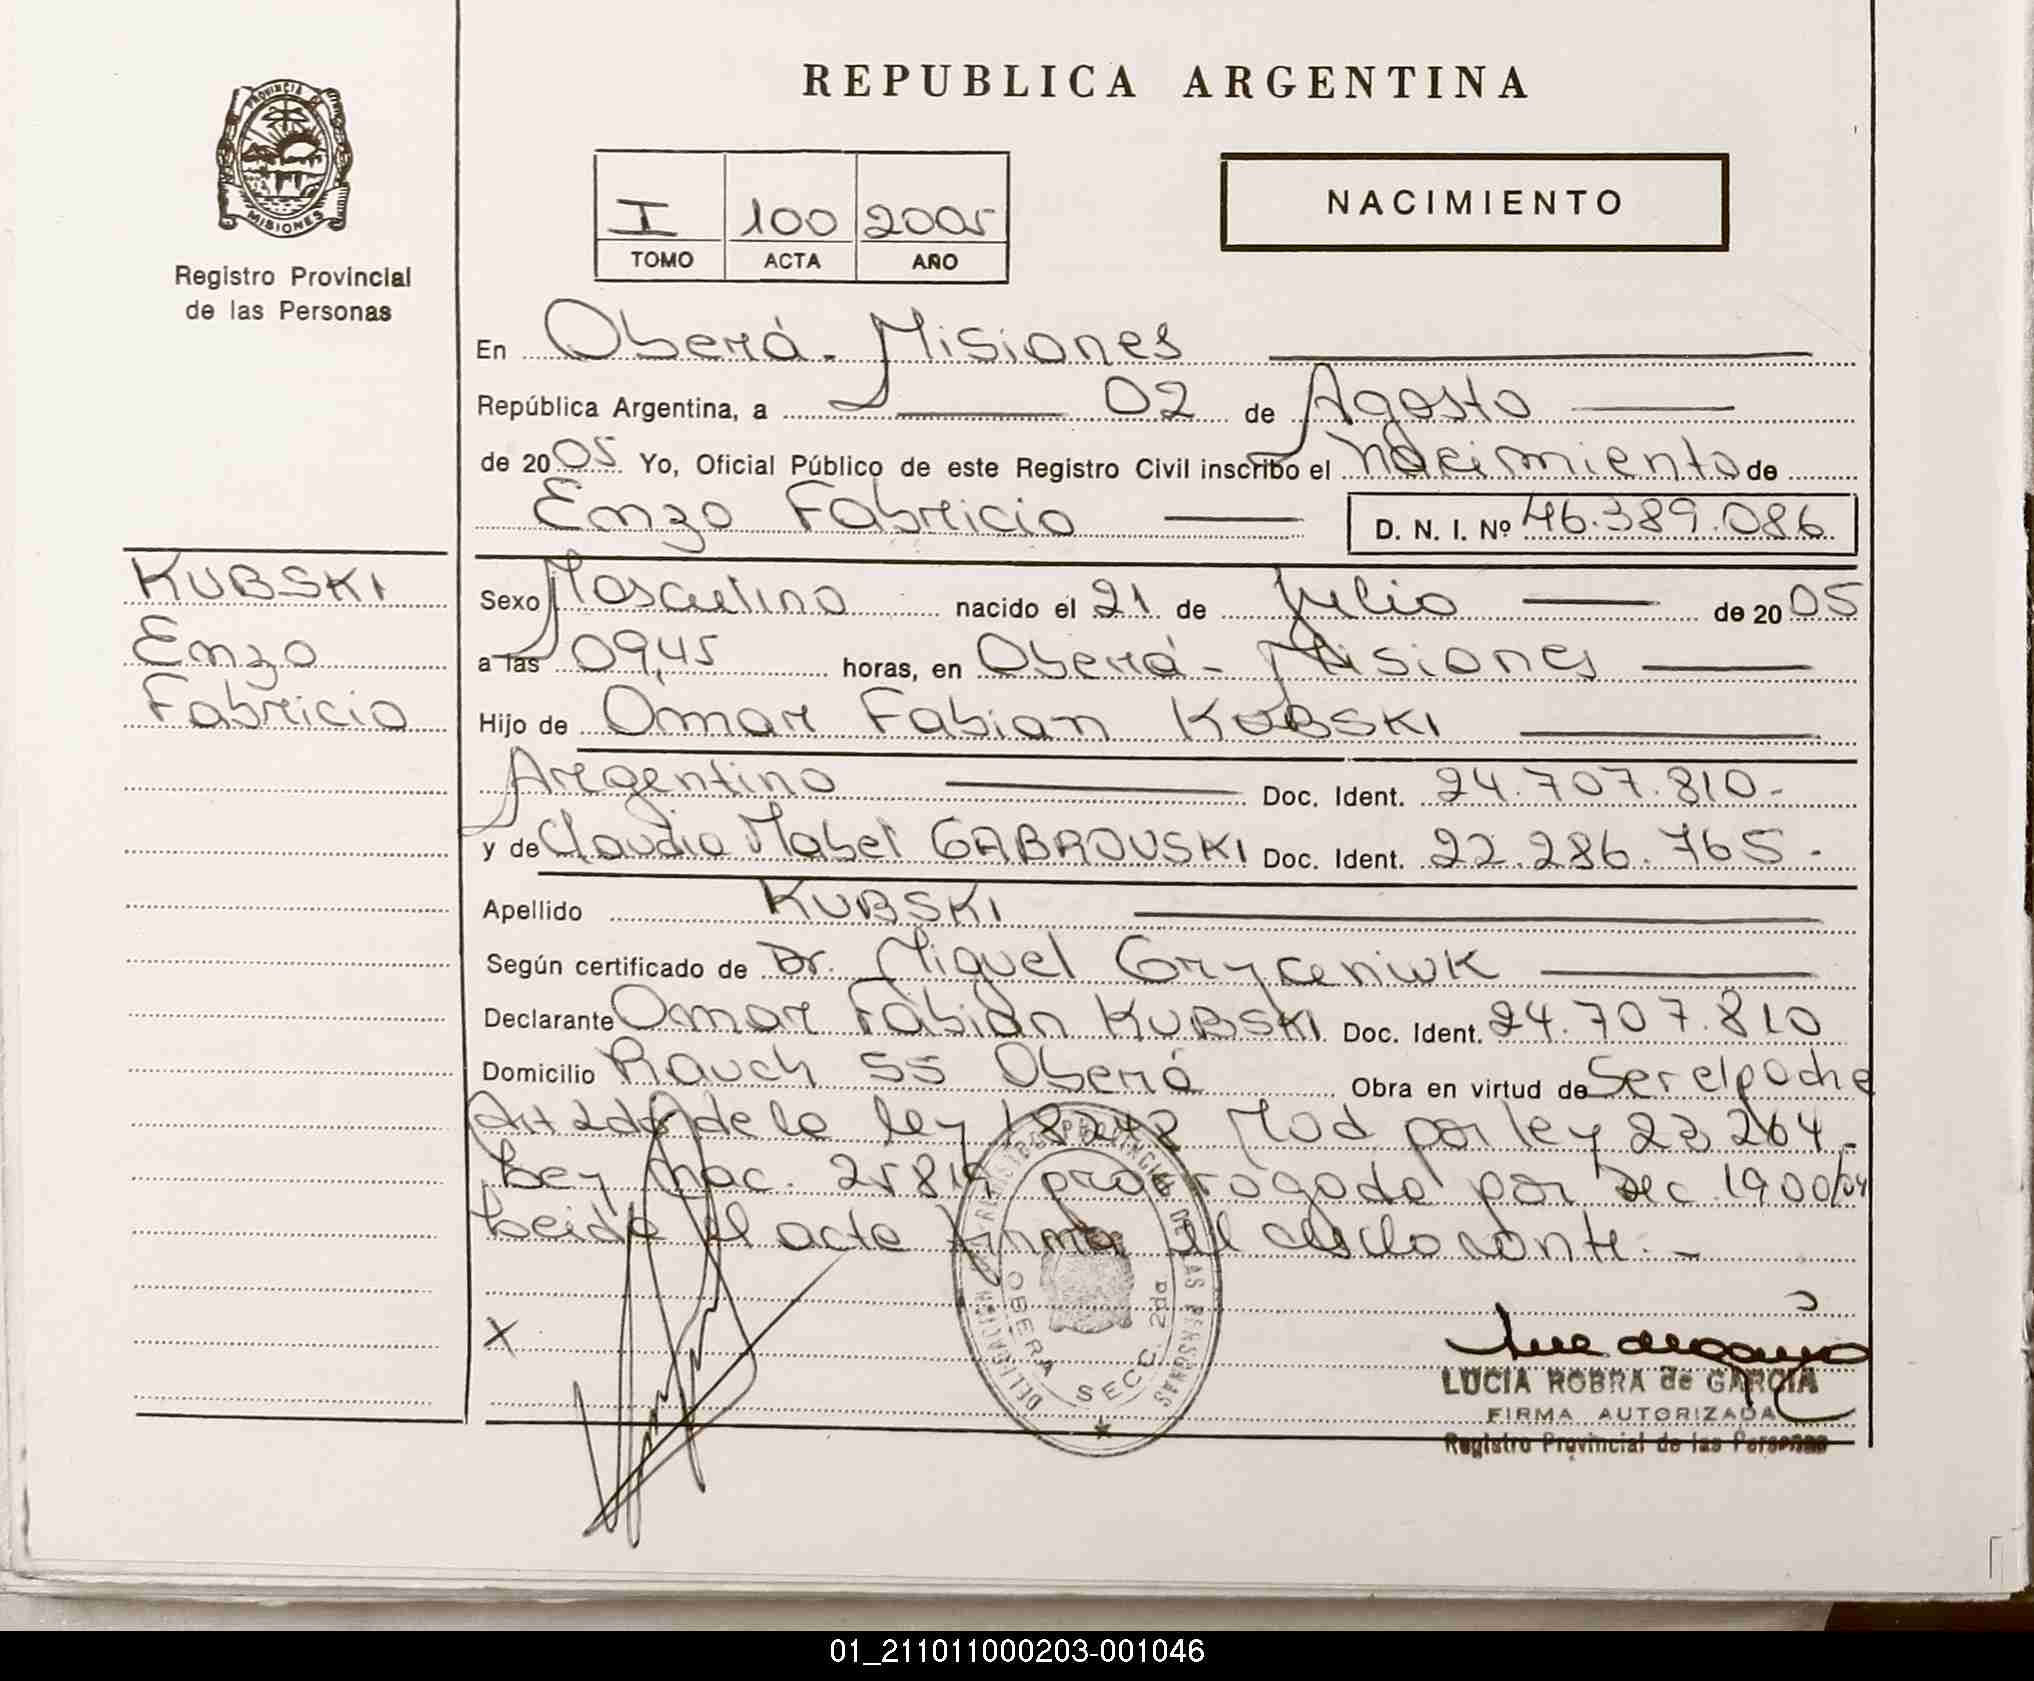 REPUBLICA ARGENTINA
PROVINCIA DE
MISIONES
Registro Provincial
de las Personas
I 100 2005
TOMO ACTA AÑO
NACIMIENTO
En Oberá - Misiones
República Argentina, a 02 de Agosto
de 2005 Yo, Oficial Público de este Registro Civil inscribo el nacimiento de
Enzo Fabricio D. N. I. Nº 46.389.086
KUBSKI
Enzo
Fabricio
Sexo Masculino nacido el 21 de Julio de 2005
a las 09,45 horas, en Oberá - Misiones
Hijo de Omar Fabian KUBSKI
Argentino Doc. Ident. 24.707.810.-
y de Claudia Mabel GABROUSKI Doc. Ident. 22.286.765.-
Apellido KUBSKI
Según certificado de Dr. Miguel Gryceniuk
Declarante Omar Fabián KUBSKI Doc. Ident. 24.707.810
Domicilio Rauch 55 Oberá Obra en virtud de Ser el padre
Art de la ley 18248 Mod por ley 23.264.-
Ley Nac. 25819 prorrogada por Dec 1900/04
Leida el acta firma el declarante.-
X
DELEGACION REGISTRO PROVINCIAL DE LAS PERSONAS
OBERA SECC. 2da
LUCIA ROBRA de GARCIA
FIRMA AUTORIZADA
Registro Provincial de las Personas
01_211011000203-001046